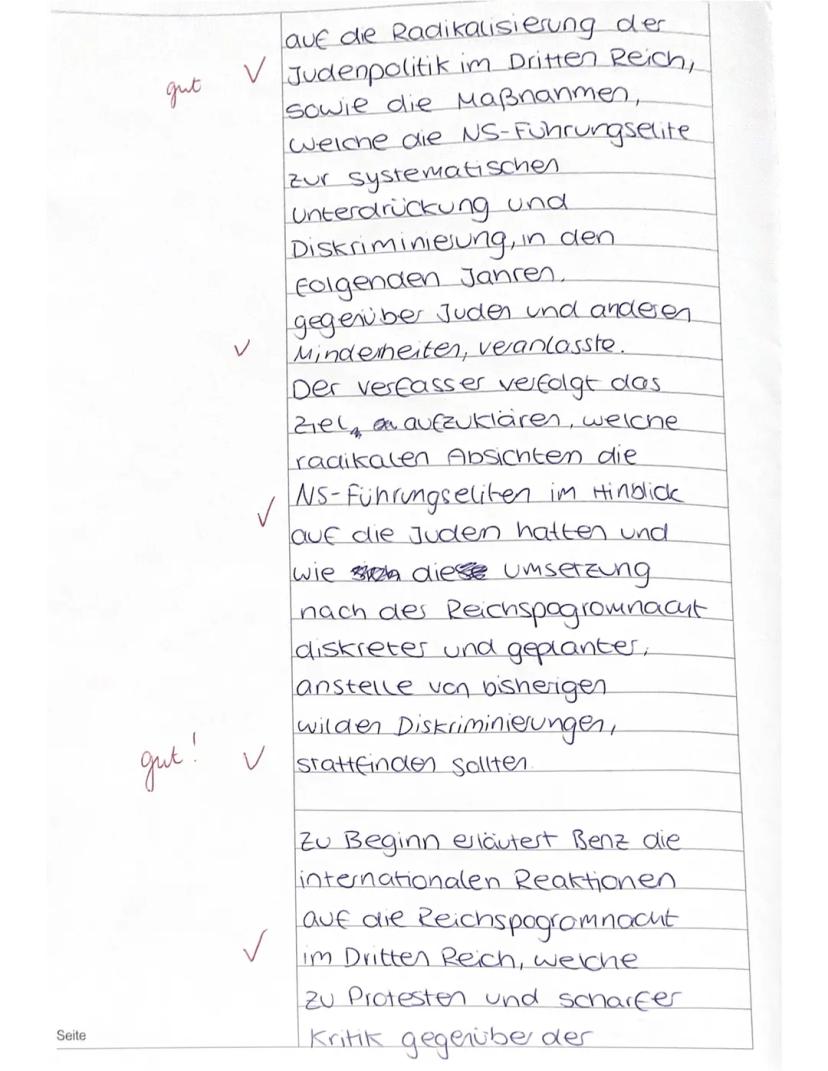 auf die Radikalisierung der
gut ✓ Judenpolitik im Dritten Reich,
sowie die Maßnahmen,
welche die NS-Führungselite
zur systematischen
Unterdrückung und
Diskriminierung, in den
folgenden Jahren,
gegenüber Juden und anderen
✓ Minderheiten, veranlasste.
Der Verfasser verfolgt das
Ziel, aufzuklären, welche
radikalen Absichten die
✓ NS-Führungseliten im Hinblick
auf die Juden hatten und
wie die Umsetzung
nach der Reichspogromnacht
diskreter und geplanter,
anstelle von bisherigen
wilden Diskriminierungen,
gut! ✓ stattfinden sollten.
Zu Beginn erläutert Benz die
internationalen Reaktionen
auf die Reichspogromnacht
✓ im Dritten Reich, welche
zu Protesten und scharfer
Seite Kritik gegenüber der